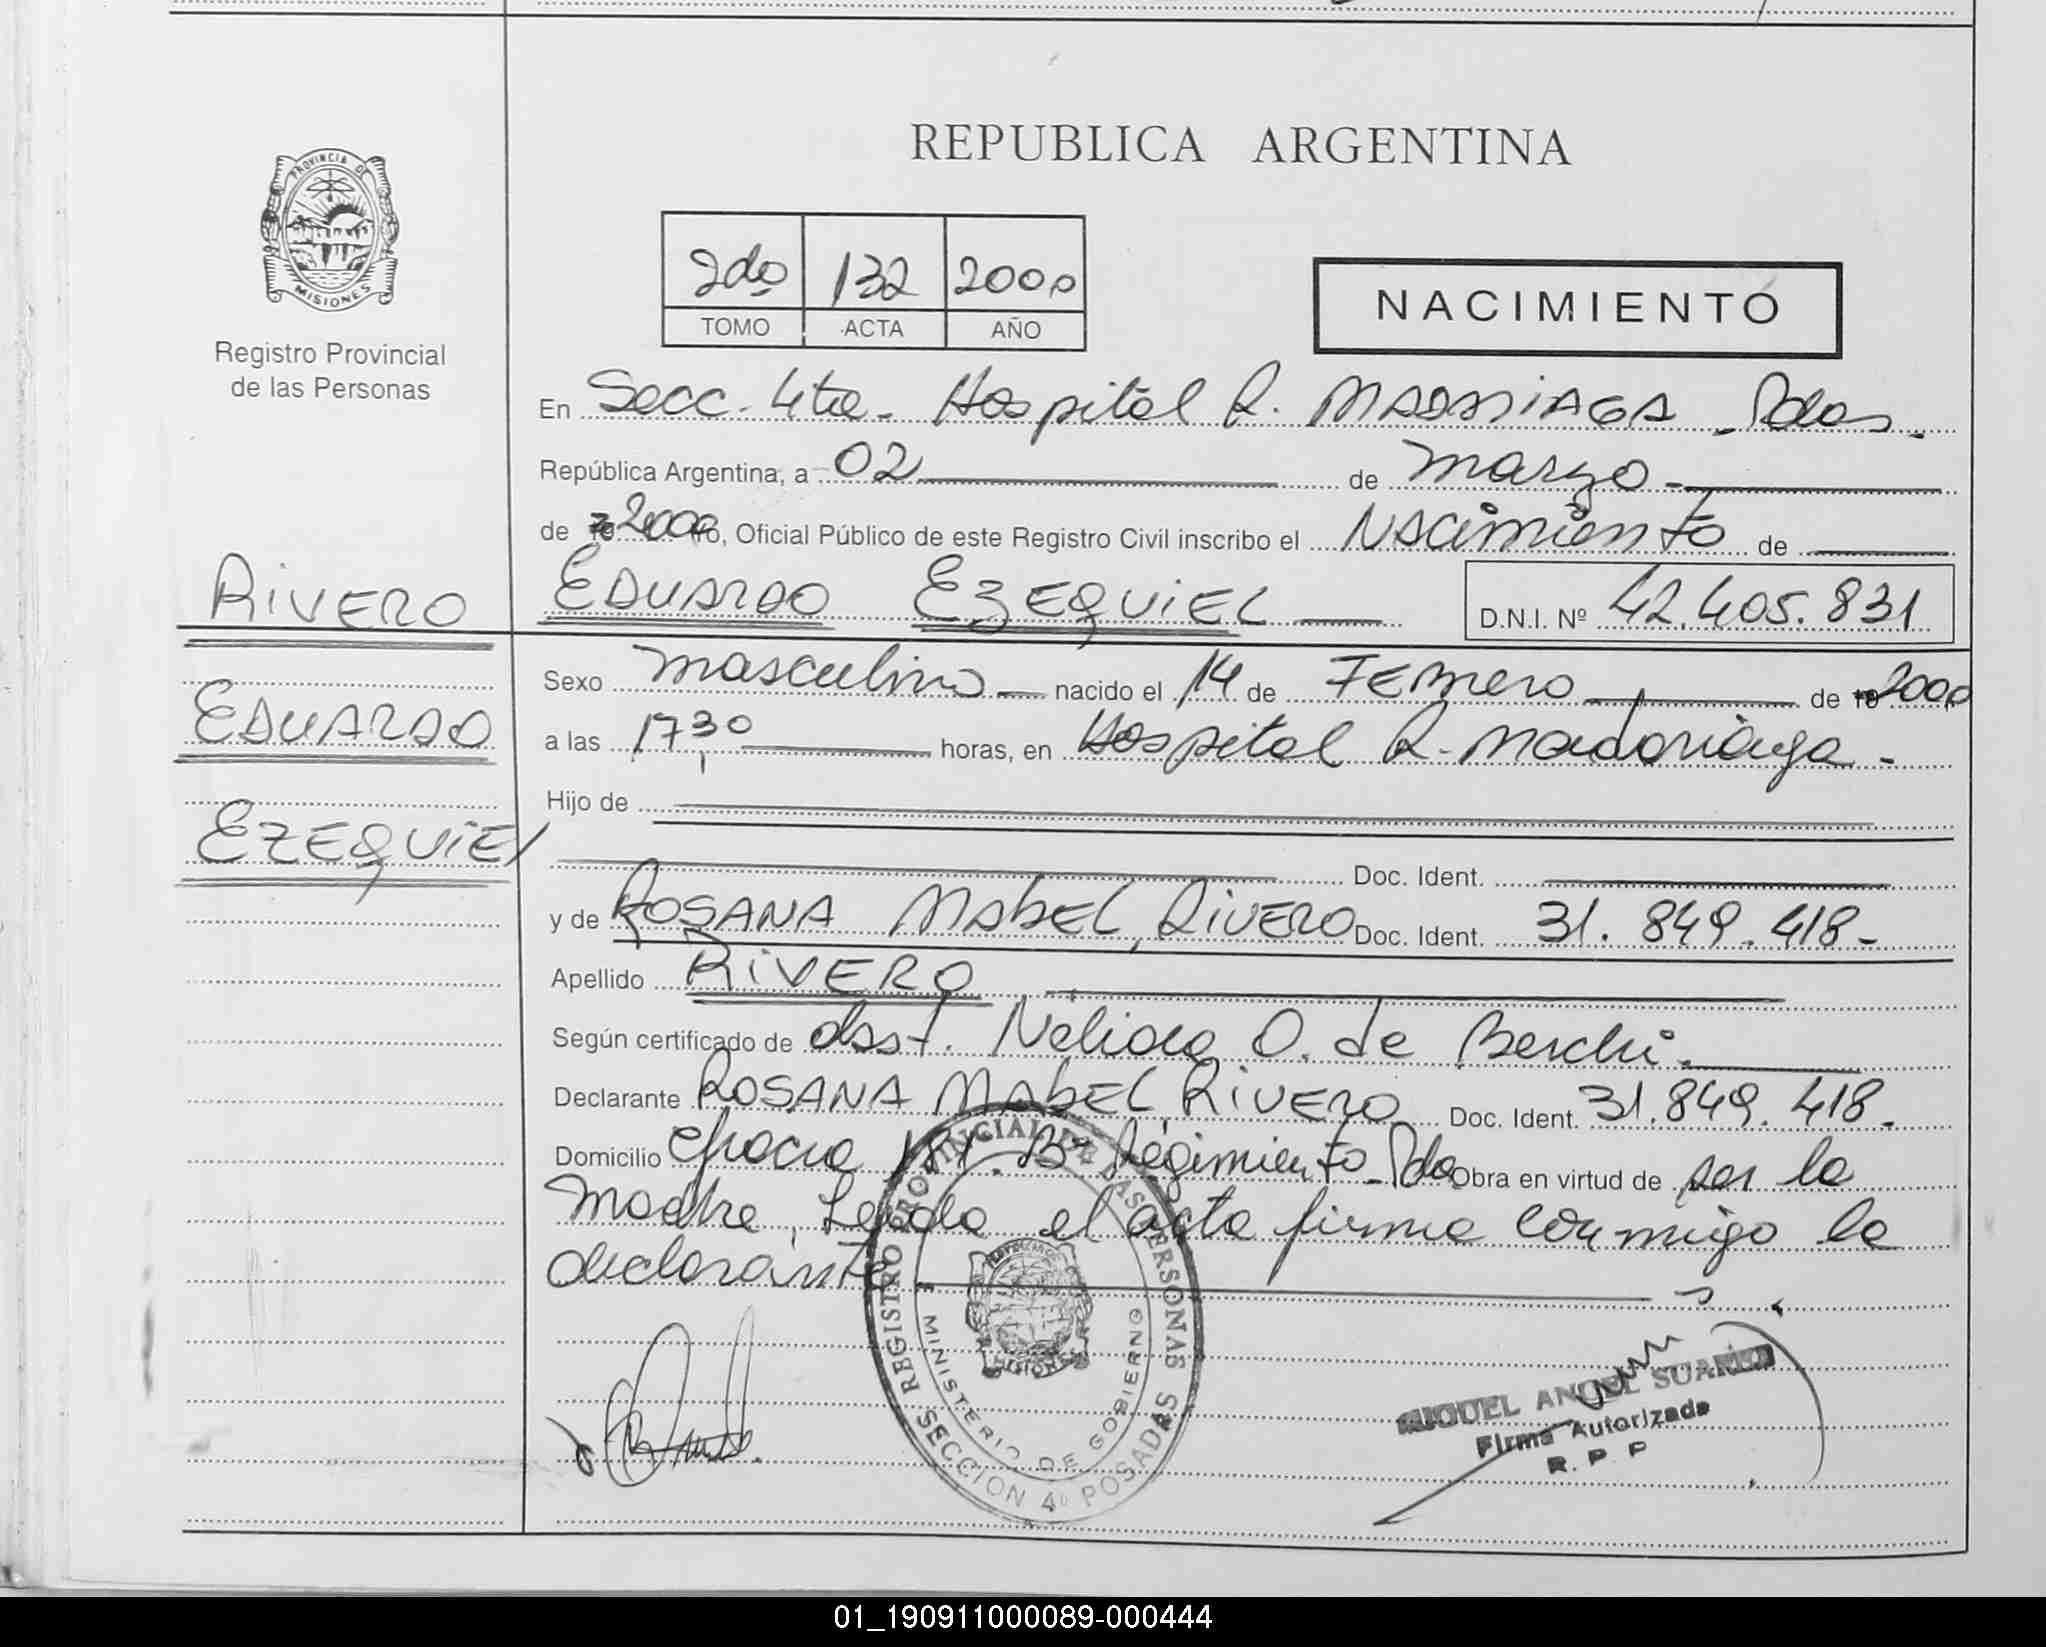 REPUBLICA ARGENTINA
PROVINCIA DE
MISIONES
Registro Provincial
de las Personas
2do 132 2000
TOMO ACTA AÑO
NACIMIENTO
En Secc. 4ta. Hospital R. MADARIAGA - Pdas.
República Argentina, a 02 de marzo
de 2000 Yo, Oficial Público de este Registro Civil inscribo el Nacimiento de
RIVERO
EDUARDO EZEQUIEL D.N.I. Nº 42.405.831
EDUARDO
EZEQUIEL
Sexo masculino nacido el 14 de FEBrero de 2000
a las 17,30 horas, en Hospital R. Madariaga -
Hijo de
Doc. Ident.
y de ROSANA MAbEL, RIVERO Doc. Ident. 31.849.418-
Apellido RIVERO
Según certificado de obst. Nelida O. de
Declarante ROSANA MAbEL RIVERO Doc. Ident. 31.849.418.
Domicilio 181. Bº Regimiento - Pdas Obra en virtud de ser la
madre, Leida el acta firma conmigo la
declarante
REGISTRO PROVINCIAL DE LAS PERSONAS
MINISTERIO DE GOBIERNO
MISIONES
SECCION 4º POSADAS
MIGUEL ANGEL SUAREZ
Firma Autorizada
R. P. P
01_190911000089-000444